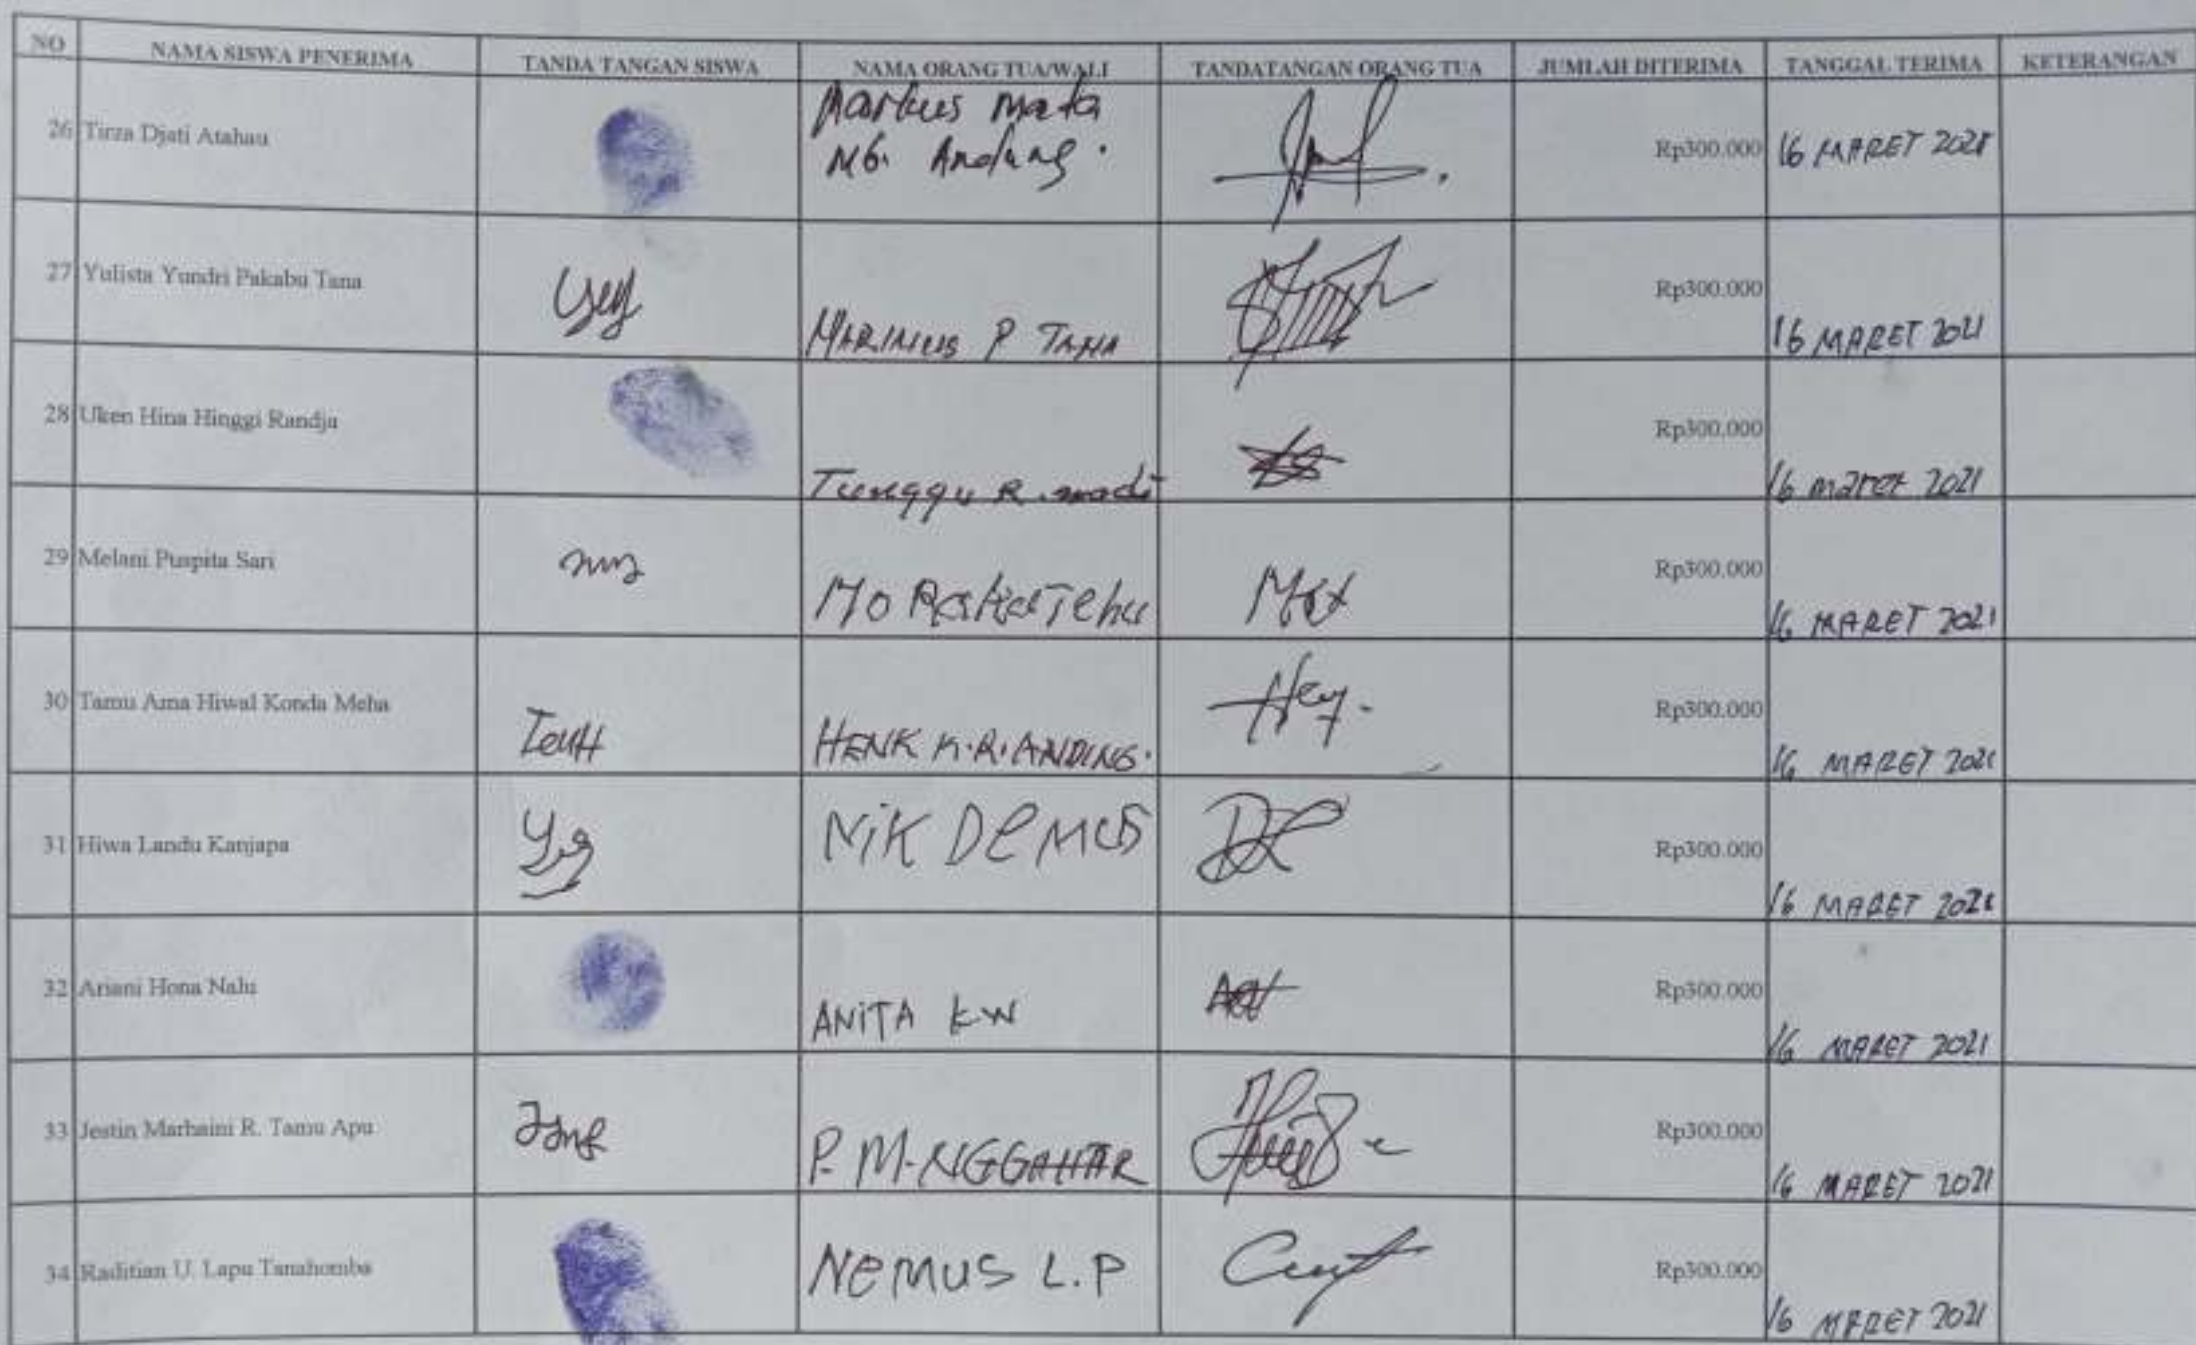 NO NAMA SISWA PENERIMA TANDA TANGAN SISWA NAMA ORANG TUA/WALI TANDATANGAN ORANG TUA JUMLAH DITERIMA TANGGAL TERIMA KETERANGAN
26 Tirza Djati Atahau Markus Mata Rp300.000 16 MARET 2021
Andung.
27 Yulista Yundri Pakabu Tana MARINUS P TANA Rp300.000 16 MARET 2021
28 Uken Hina Hinggi Randja Tunggu R. madi Rp300.000 16 maret 2021
29 Melani Puspita Sari Rp300.000 16 MARET 2021
30 Tamu Ama Hiwal Konda Meha HENK K.R.ANDUNG. Rp300.000 16 MARET 2021
31 Hiwa Landu Kanjapa NiK DeMUS Rp300.000 16 MARET 2021
32 Ariani Hona Nalu ANiTA KW Rp300.000 16 MARET 2021
33 Jestin Marhaini R. Tamu Apu P. M. NGGAHAR Rp300.000 16 MARET 2021
34 Raditian U. Lapu Tanahomba NeMUS L.P Rp300.000 16 MARET 2021